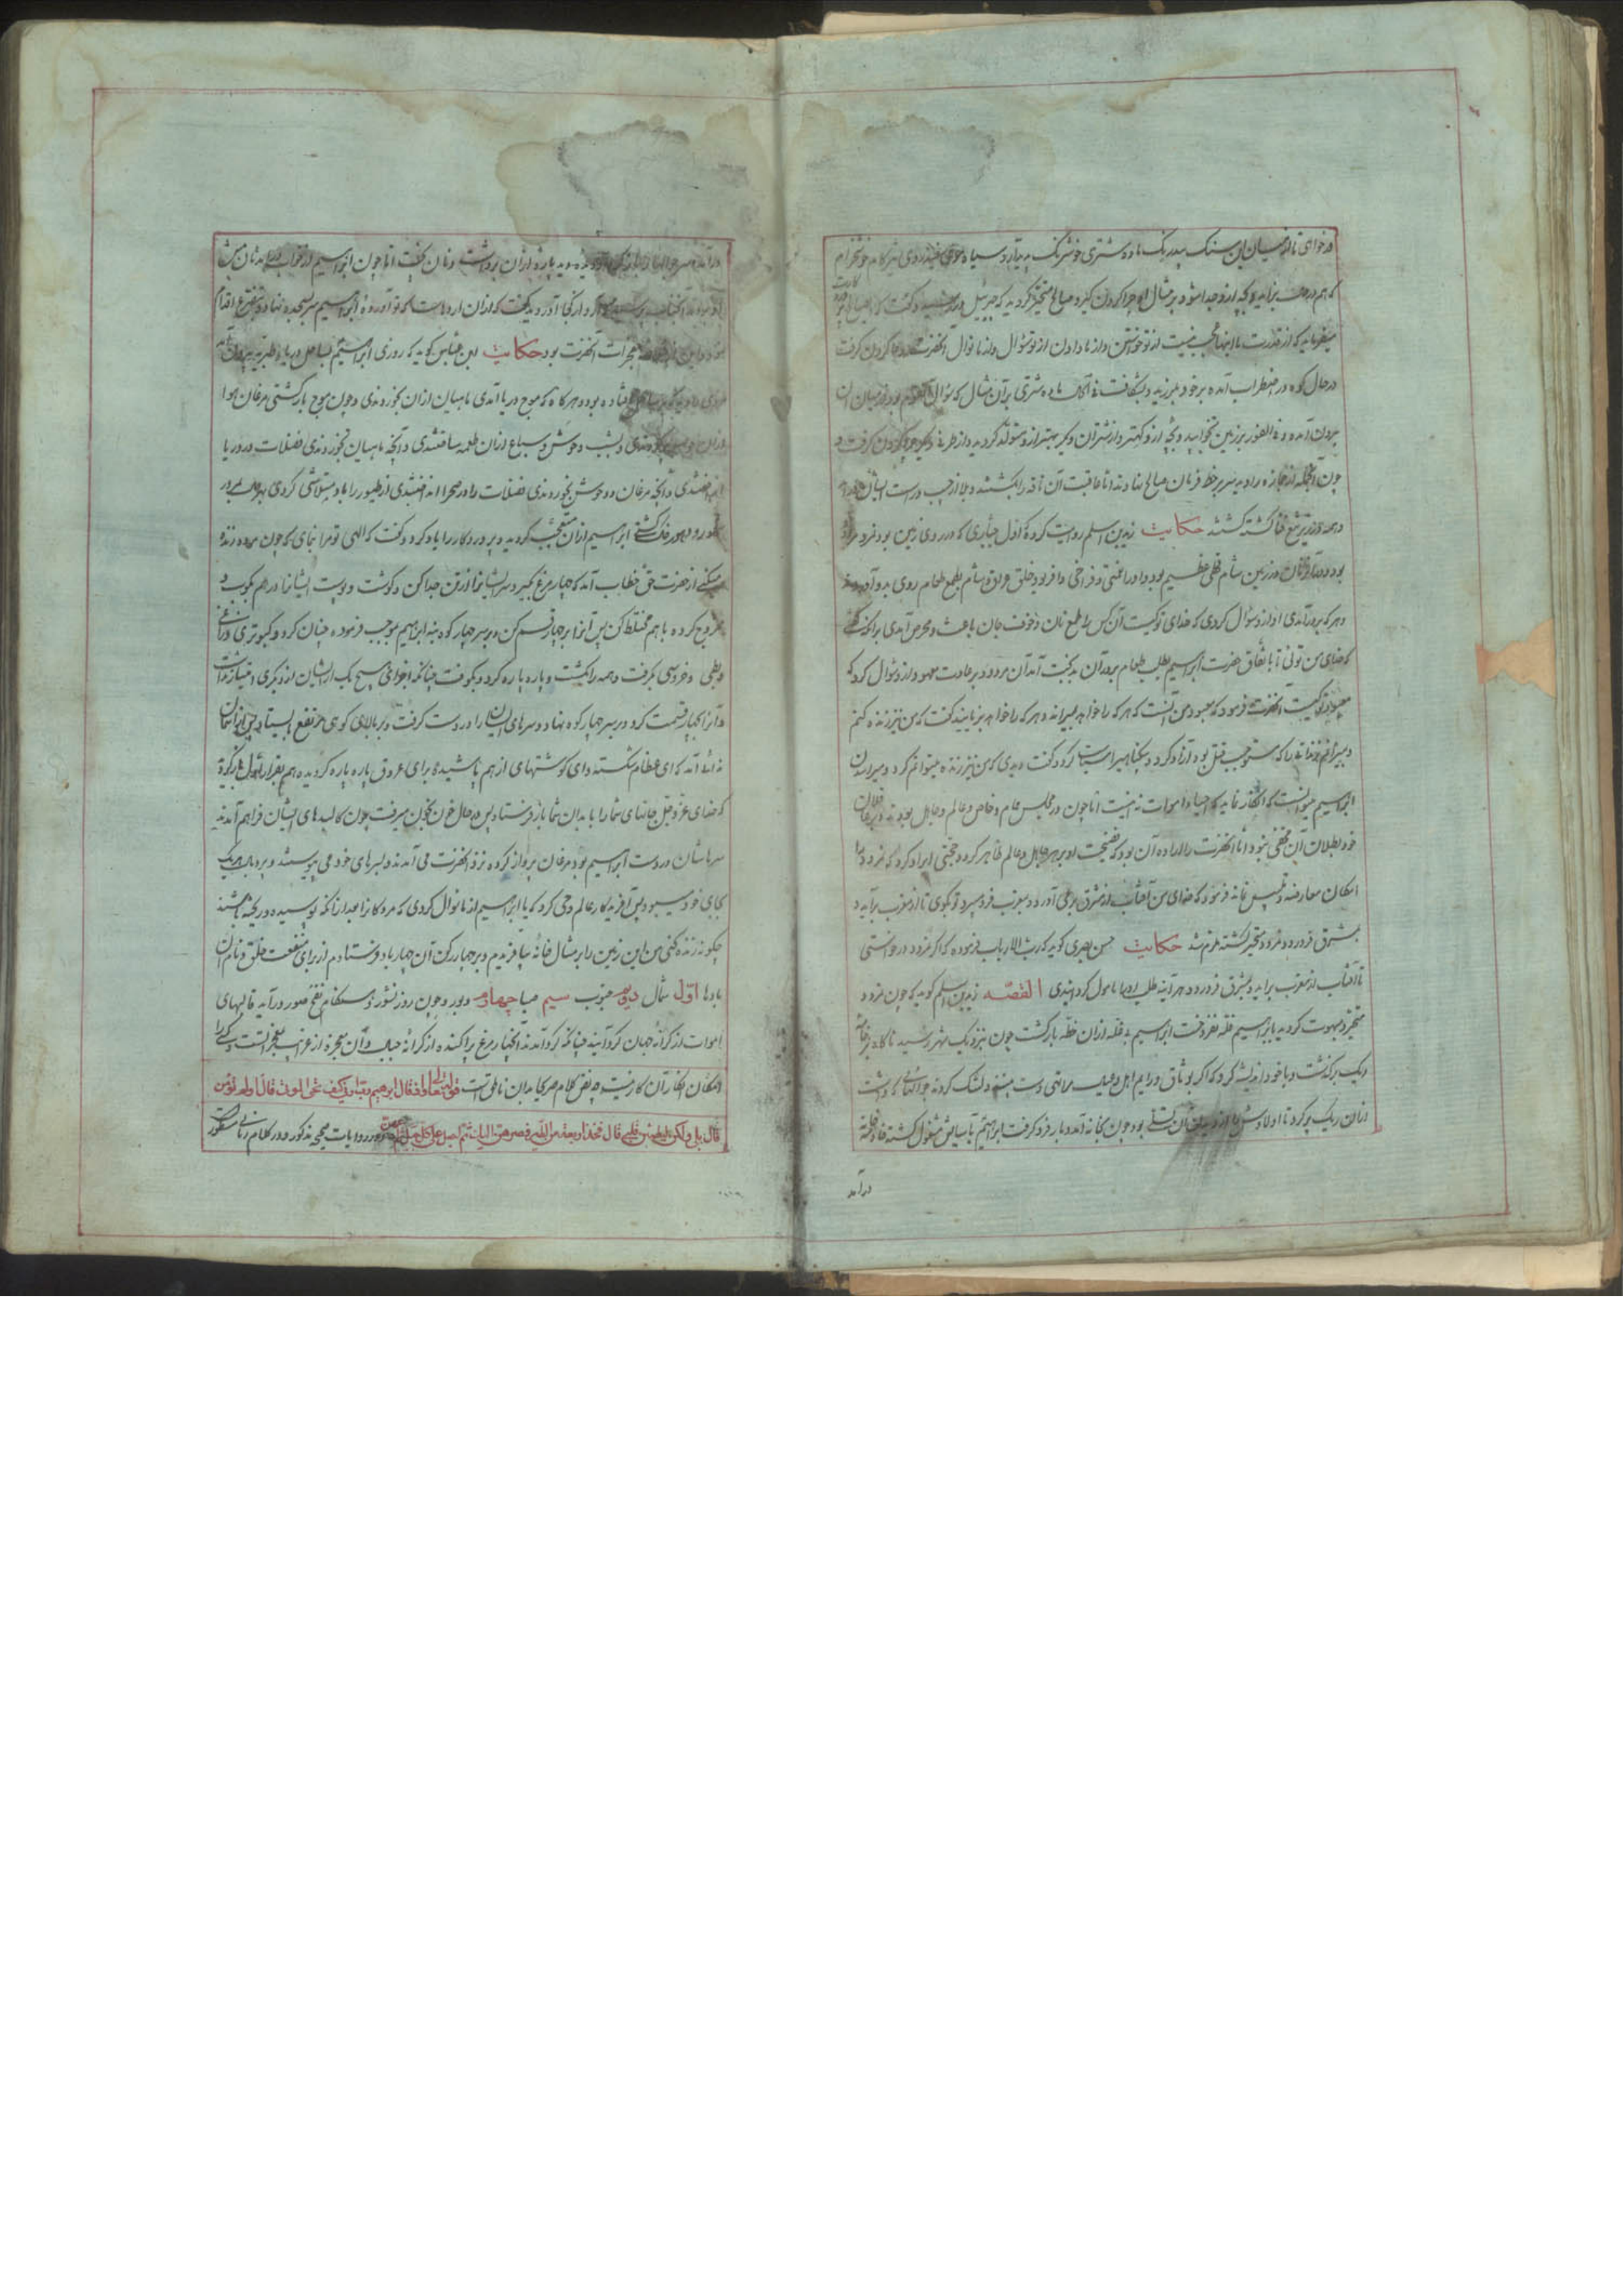 در خواهی تا از میان این سنگ پدید رنگ ماده شتری خوشرنگ پدید آرد سیاه موی سفید روی نرم کام خوشخرام
که هم در حال بزاید و بچه ازو جدا شود و بر مثال او چرا کردن گیرد صالح متحیر گردید که جبرئیل در رسید و گفت که
میفرماید که از قدرت ما اینها عجب نیست از تو خواستن و از ما دادن از تو سؤال و از ما نوال آنحضرت دعا کردن گرفت
در حال کوه در اضطراب آمده بر خود بلرزید و بشکافت ماده شتری بر آن مثال که سؤال بود از میان آن
بیرون آمده و فی الفور بر زمین بخوابید و بچه ازو کهتر و از شتران دیگر بهتر ازو متولد گردید و از طرفی دیگر چرا کردن گرفت و
چون آنجمله از جنازه را دید سر بر خط فرمان صالح نهادند اما عاقبت آن ناقه را بکشتند و بلا از چپ و راست ایشان
و همه در زیر تیغ فنا کشته گشتند حکایت زید بن اسلم روایت کرد که اول جباری که در روی زمین بود نمرود
بود و در آنزمان در زمین شام قحطی عظیم بود و او را غنی و فراخی وافر بود خلق عراق و شام بطمع طعام روی بدو آوردند
و هر که برو در آمدی او ازو سؤال کردی که خدای تو کیست آن کس را طمع نان و خوف جان باعث و محرض آمدی بر آنکه گفتی
که خدای من توئی تا باتفاق حضرت ابراهیم بطلب طعام برو در آن بدبخت آمد آن مردود بر عادت معهود ازو سؤال کرد که
معبود تو کیست آنحضرت فرمود که معبود من آنست که هر که را خواهد بمیراند و هر که را خواهد بزیاند گفت که من نیز زنده کنم
و بمیرانم خونئی را که مستوجب قتل بود آزاد کرد و بیگناهی را سیاست کرد و گفت دیدی که من نیز زنده میتوانم کرد و میراندن
ابراهیم میتوانست که انکار نماید که احیاء اموات نه اینست اما چون در مجلس عام و خاص و عالم و جاهل بودند
خود بطلان آن مخفی نبود اما آنحضرت را اراده آن بود که فضیحت او بر هر جاهل و عالم ظاهر گردد حجتی ایراد کرد که نمرود را
امکان معارضه و تلبیس نماند فرمود که خدای من آفتاب از مشرق برمی آورد و بمغرب فرو میبرد تو بگوی تا از مغرب برآید و
بمشرق فرو رود نمرود متحیر گشته ملزم شد حکایت حسن بصری گوید که رب الارباب فرموده که اگر نمرود در خواستی
تا آفتاب از مغرب برآید و بمشرق فرو رود هر آینه طلب او را مامول گردانیدی القصه زید بن اسلم گوید که چون نمرود
متحیر و مبهوت گردید بابراهیم غله نفروخت ابراهیم بی غله ازان خطه بازگشت چون بنزدیک شهر رسید ناگاه بر
ریگ برگذشت و با خود اندیشه کرد که اگر بوثاق درآیم اهل و عیال مرا تهی دست بینند دلتنگ گردند جوالی که داشت
ازان ریگ پر کرد تا اولادش را از دیدن آن تسلی بود چون بخانه آمد و بار فرو گرفت ابراهیم بآسایش مشغول گشته
درآمد
درآمد و سر جوال پاره ازان برداشت و نان پخت اما چون ابراهیم از خواب در آمد نان پیش
که این آرد از کجا آورده گفت که ازان ارد است که تو آورده ابراهیم سر بسجده نهاد و بتضرع اقدام
معجزات آنحضرت بود حکایت ابن عباس گوید که روزی ابراهیم بساحل دریاء طبریه بیرون
افتاده بود و هر گاه که موج دریا آمدی ماهیان ازان بخوردندی و چون موج بازگشتی مرغان هوا
و بشب وحوش و سباع ازان طعمه ساختندی و آنچه ماهیان نخوردندی فضلات در دریا
و آنچه مرغان و وحوش بخوردندی فضلات را در صحرا انداختندی از طیور را باد متلاشی کردی
ابراهیم ازان متعجب گردید و پروردگار را یاد کرد و گفت که الهی تو مرا بنمای که چون مرده زنده
میکنی از حضرت حق خطاب آمد که چهار مرغ بگیر و سر ایشانرا از تن جدا کن و گوشت و پوست ایشانرا در هم بکوب و
ممزوج کرده با هم مختلط کن پس آنرا بر چهار قسم کن و بر سر چهار کوه بنه ابراهیم بموجب فرموده چنان کرد و کبوتری و زاغی
و بطی و خروسی بگرفت و همه را بکشت و پاره پاره کرد و بکوفت چنانکه اجزای هیچ یک از ایشان از دیگری امتیاز نداشت
و آنرا بچهار قسمت کرد و بر سر چهار کوه نهاد و سرهای ایشان را در دست گرفت و بر بالای کوهی مرتفع بایستاد پس از آسمان
ندائی آمد که ای عظام شکسته و ای گوشتهای از هم پاشیده و ای عروق پاره پاره گردیده هم بقرار اول باز گردید
که خدای عز و جل جانهای شما را بابدان شما باز فرستاد پس در حال خون بخون میرفت چون کالبدهای ایشان فراهم آمدند
سرهاشان در دست ابراهیم بود مرغان پرواز کرده نزد آنحضرت می آمدند و بسرهای خود می پیوستند و پر و بال هر یک
بجای خود میبود پس آفریدگار عالم وحی کرد که یا ابراهیم از ما سؤال کردی که مردگانرا بعد از آنکه پوسیده و ریخته باشند
چگونه زنده کنی من این زمین را بر مثال خانه بیافریدم و بر چهار رکن آن چهار باد فرستادم از برای منفعت خلق و نام آن
بادها اول شمال دویم جنوب سیم صبا چهارم دبور و چون روز نشور و هنگام نفخ صور درآید قالبهای
اموات از کرانه جهان گرد آیند چنانکه گرد آمدند آنچهار مرغ پراکنده از کرانه جبال و آن معجزه از غرایب معجزاتست و کسی را
امکان انکار آن کار نیست چه نص کلام هر کجا بدان ناطق است قوله تعالی واذ قال ابرهیم رب ارنی کیف تحی الموتی قال اولم تؤمن
قال بلی ولکن لیطمئن قلبی قال فخذ اربعة من الطیر فصرهن الیک ثم اجعل علی کل جبل منهن و در روایات صحیحه مذکور و در کلام ربانی مسطور